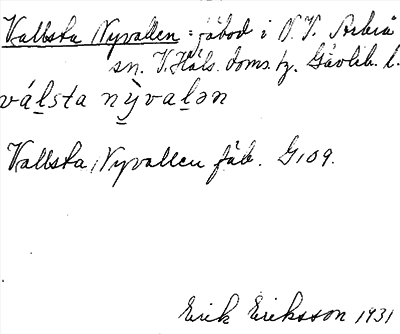 Vallsta Nyvallen: fäbod i N. V. Arbrå
sn. V. Häls. doms. tg. Gävleb. l.
vál̠sta nỳ̠val̠ən
Vallsta, Nyvallen fäb. G109.
Erik Eriksson 1931